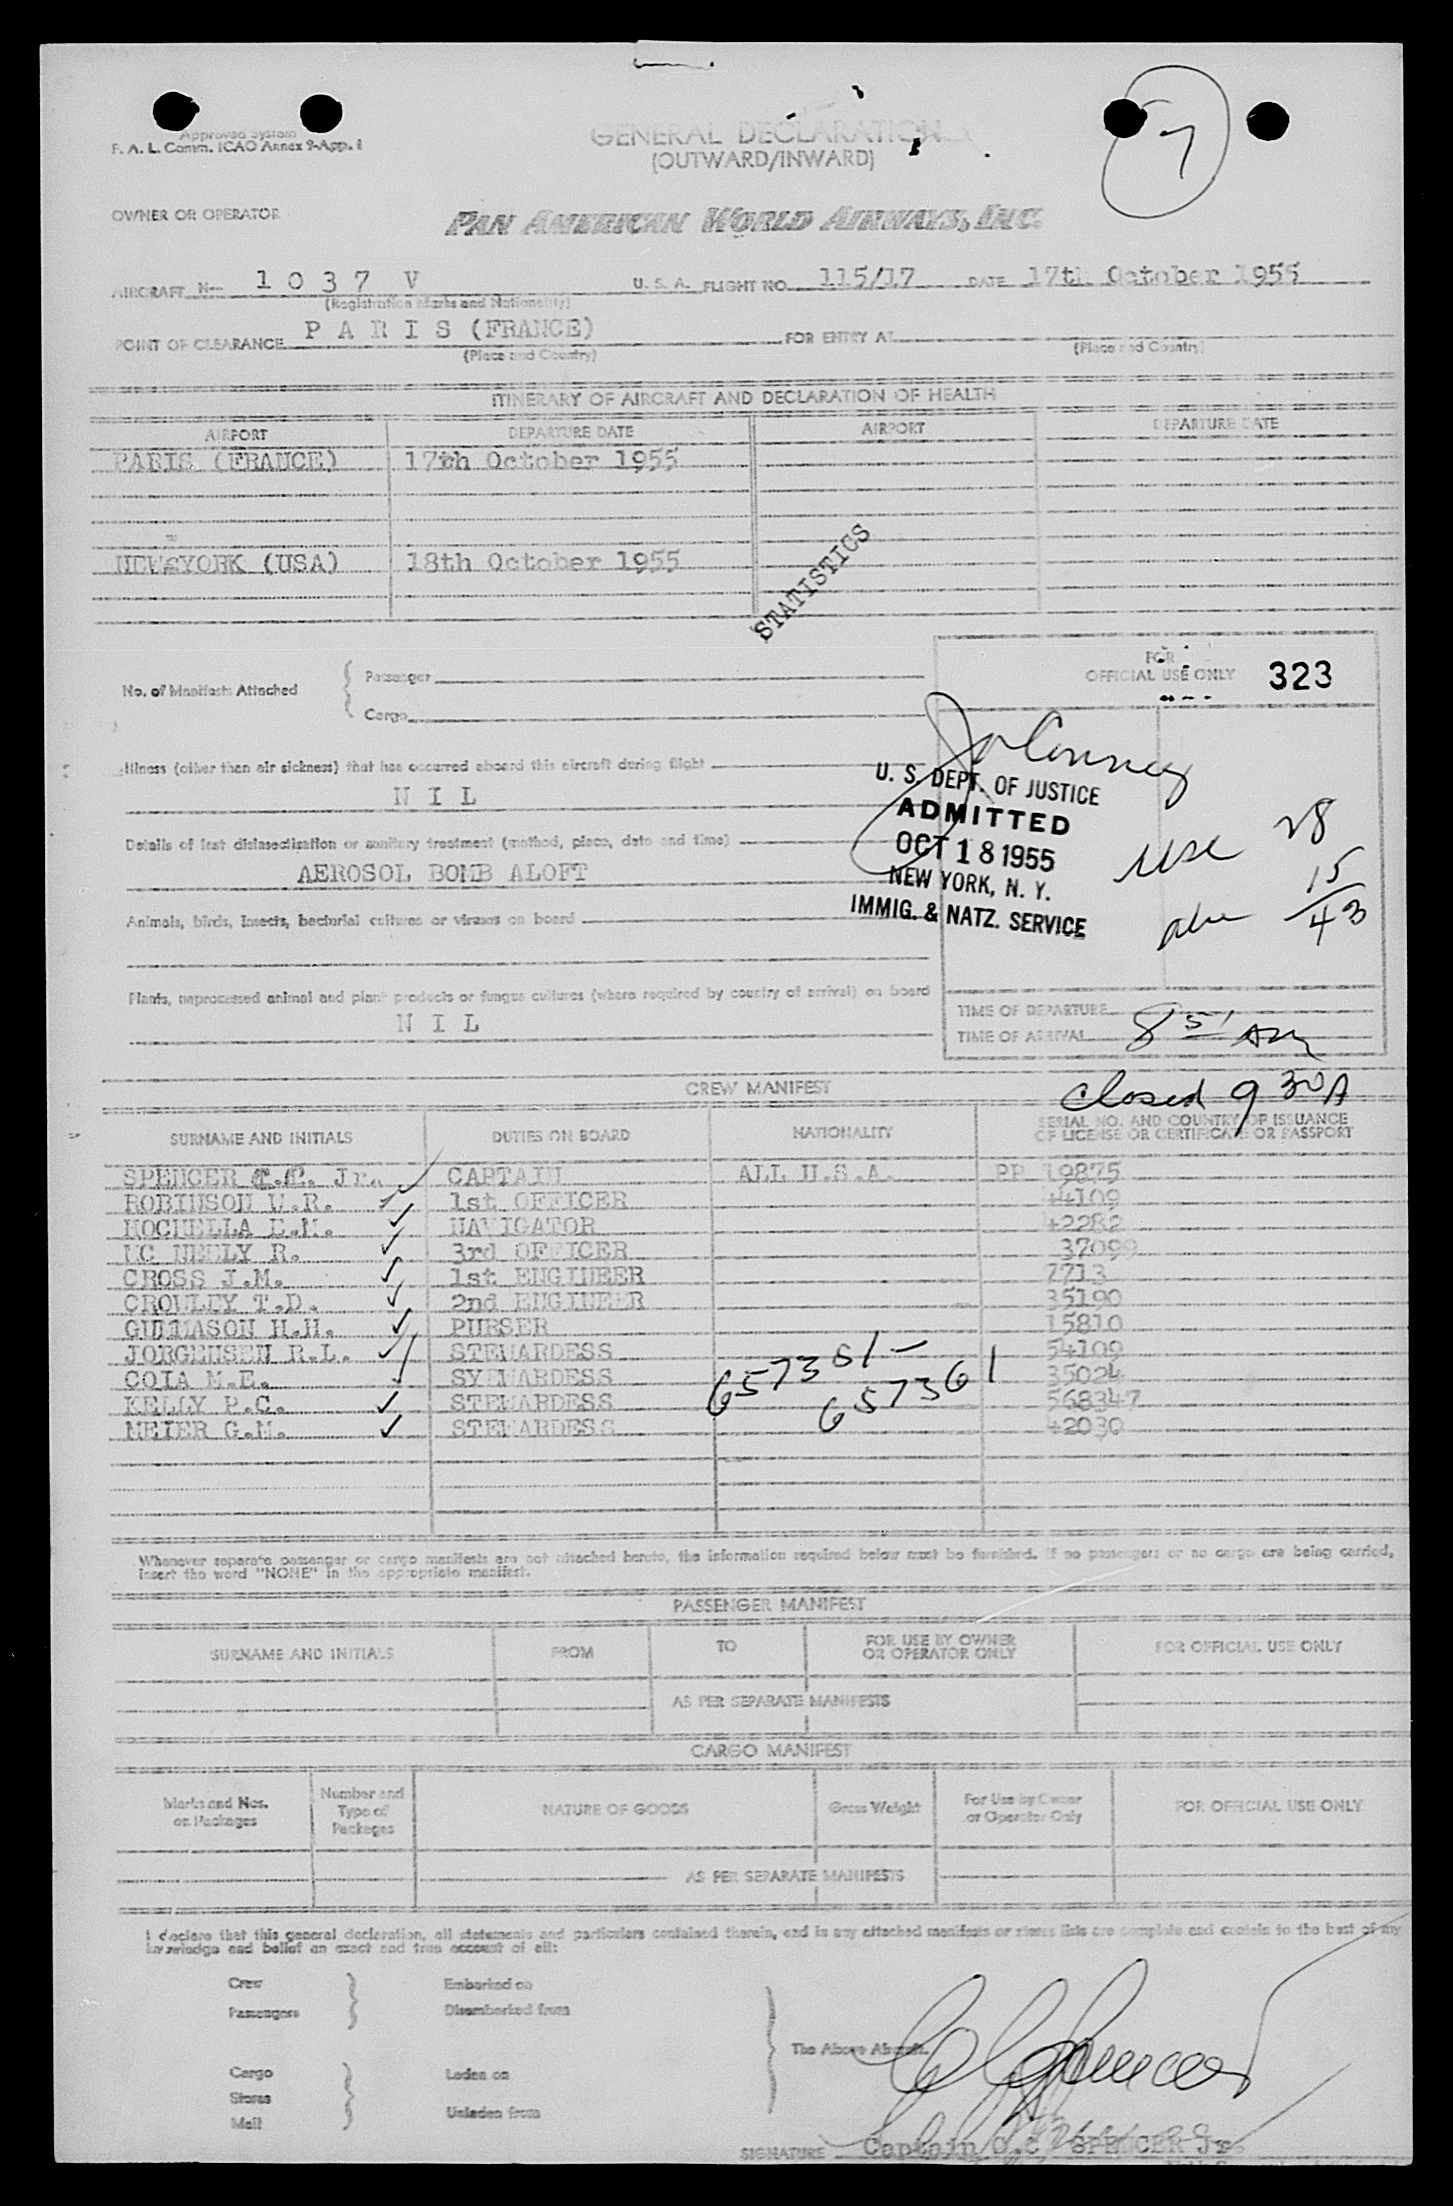 7
Approved System
F. A. L. Comm. ICAO Annex 9-App. 1
GENERAL DECLARATION
(OUTWARD/INWARD)
OWNER OR OPERATOR
PAN AMERICAN WORLD AIRWAYS, INC.
AIRCRAFT N— 1 0 3 7 V U. S. A. FLIGHT NO. 115/17 DATE 17th October 1955
(Registration Marks and Nationality)
POINT OF CLEARANCE P A R I S (FRANCE) FOR ENTRY AT
(Place and Country) (Place and Country)
ITINERARY OF AIRCRAFT AND DECLARATION OF HEALTH
AIRPORT DEPARTURE DATE AIRPORT DEPARTURE DATE
PARIS (FRANCE) 17th October 1955
NEW YORK (USA) 18th October 1955
STATISTICS
FOR
OFFICIAL USE ONLY 323
No. of Manifests Attached
Passenger
Cargo
Illness (other than air sickness) that has occurred aboard this aircraft during flight
N I L
Details of last disinsectisation or sanitary treatment (method, place, date and time)
AEROSOL BOMB ALOFT
Animals, birds, insects, bacterial cultures or viruses on board
Plants, unprocessed animal and plant products or fungus cultures (where required by country of arrival) on board
N I L
U. S. DEPT. OF JUSTICE
ADMITTED
OCT 18 1955
NEW YORK, N. Y.
IMMIG. & NATZ. SERVICE
usc 28
15
43
TIME OF DEPARTURE
TIME OF ARRIVAL 8 51 AM
Closed 9 30 A
CREW MANIFEST
SURNAME AND INITIALS DUTIES ON BOARD NATIONALITY SERIAL NO. AND COUNTRY OF ISSUANCE OF LICENSE OR CERTIFICATE OR PASSPORT
SPENCER C.C. Jr. CAPTAIN ALL U.S.A. PP 19875
ROBINSON W.R. 1st OFFICER 44109
MOCHELLA E.N. NAVIGATOR 42282
MC NEELY R. 3rd OFFICER 37099
CROSS J.M. 1st ENGINEER 7713
CROWLEY T.D. 2nd ENGINEER 35190
GUNNASON H.H. PURSER 15810
JORGENSEN R.L. STEWARDESS 54109
COIA M.E. STEWARDESS 35024
KELLY P.C. STEWARDESS 568347
MEIER G.M. STEWARDESS 42030
6573 51 -
657361
Whenever separate passenger or cargo manifests are not attached hereto, the information required below must be furnished. If no passengers or no cargo are being carried,
insert the word "NONE" in the appropriate manifest.
PASSENGER MANIFEST
SURNAME AND INITIALS FROM TO FOR USE BY OWNER OR OPERATOR ONLY FOR OFFICIAL USE ONLY
AS PER SEPARATE MANIFESTS
CARGO MANIFEST
Marks and Nos. on Packages Number and Type of Packages NATURE OF GOODS Gross Weight For Use by Owner or Operator Only FOR OFFICIAL USE ONLY
AS PER SEPARATE MANIFESTS
I declare that this general declaration, all statements and particulars contained therein, and in any attached manifests or stores lists are complete and contain to the best of my
knowledge and belief an exact and true account of all:
Crew Embarked on
Passengers Disembarked from
The Above Aircraft.
Cargo Laden on
Stores
Mail Unladen from
SIGNATURE Captain C.C. SPENCER Jr.